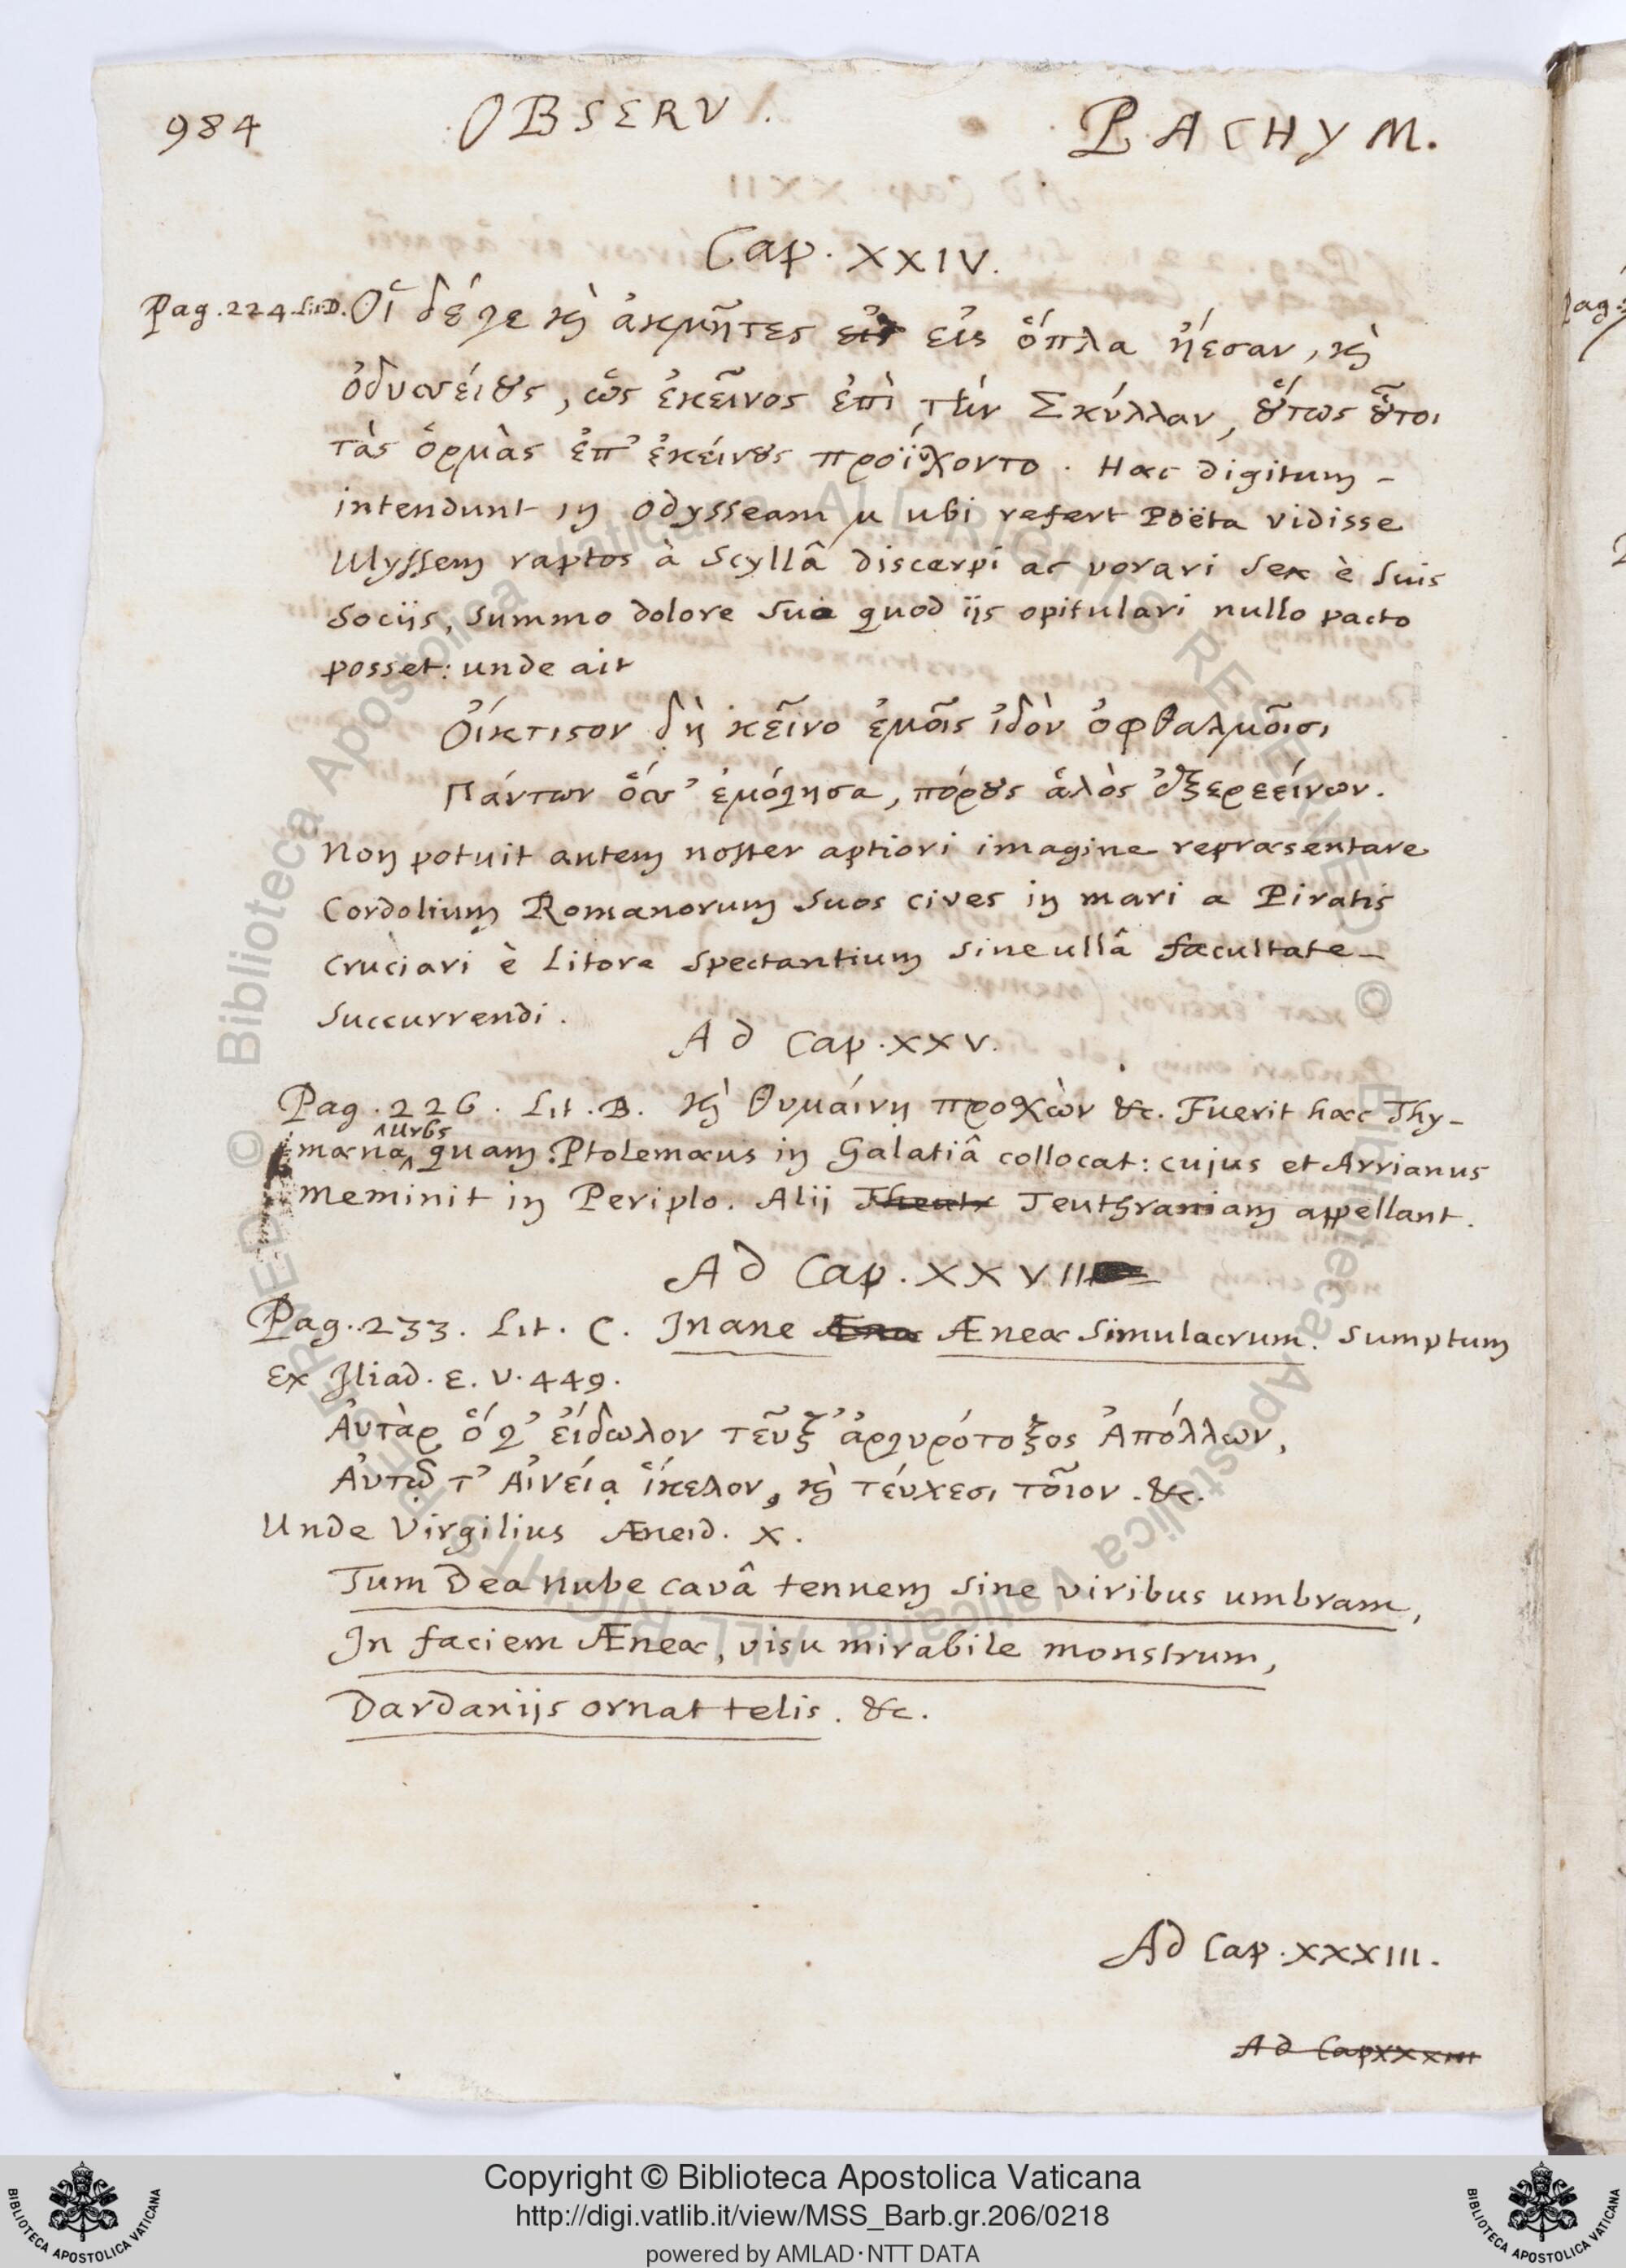 984 OBSERV. PACHYM.
Cap. XXIV.
Pag. 224 Lit D. Οἵ δέγε κὶ ἀκμῆτες εἰς εἰς ὅπλα ᾔεσαν, κὶ
ὀδυσσείους, ὡς ἐκεῖνος ἐπὶ τὴν Σκύλλαν, οὕτως οὗτοι
τὰς ὁρμὰς ἐπ' ἐκείνους προΐχοντο. Hæc digitum -
intendunt in Odysseam μ ubi refert Poëta vidisse
Ulyssem raptos à Scyllâ discerpi ac vorari sex è suis
socijs, summo dolore suo quod ijs opitulari nullo pacto
posset: unde ait
Οἴκτιστον δὴ κεῖνο ἐμοῖς ἰδὸν ὀφθαλμοῖσι
Πάντων ὅσσ' ἐμόγησα, πόρους ἁλὸς ἐξερεείνων.
Non potuit autem noster aptiori imagine repræsentare
Cordolium Romanorum suos cives in mari a Piratis
cruciari è Litore spectantium sine ullâ facultate -
succurrendi.
Ad Cap. XXV.
Pag. 226. Lit. B. κὶ Θυμαίνῃ προσχὼν &c. Fuerit hæc Thy-
urbs
mæna quam Ptolemæus in Galatiâ collocat: cujus et Arrianus
meminit in Periplo. Alij Theutr Teuthraniam appellant.
Ad Cap. XXVII
Pag. 233. Lit. C. Inane Ænea Æneæ simulacrum. sumptum
ex Iliad. ε. v. 449.
Αὐτὰρ ὅ γ' εἴδωλον τεῦξ' ἀργυρότοξος Ἀπόλλων,
Αὐτῷ τ' Αἰνείᾳ ἴκελον, κὶ τεύχεσι τοῖον. &c.
Unde Virgilius Æneid. X.
Tum Dea nube cavâ tenuem sine viribus umbram,
In faciem Æneæ, visu mirabile monstrum,
Dardanijs ornat telis. &c.
Ad Cap. XXXIII.
Ad Cap XXXIII
Pag.
Copyright © Biblioteca Apostolica Vaticana
http://digi.vatlib.it/view/MSS_Barb.gr.206/0218
powered by AMLAD·NTT DATA
BIBLIOTECA APOSTOLICA VATICANA
BIBLIOTECA APOSTOLICA VATICANA
© Biblioteca Apostolica Vaticana ALL RIGHTS RESERVED
© Biblioteca Apostolica Vaticana ALL RIGHTS RESERVED